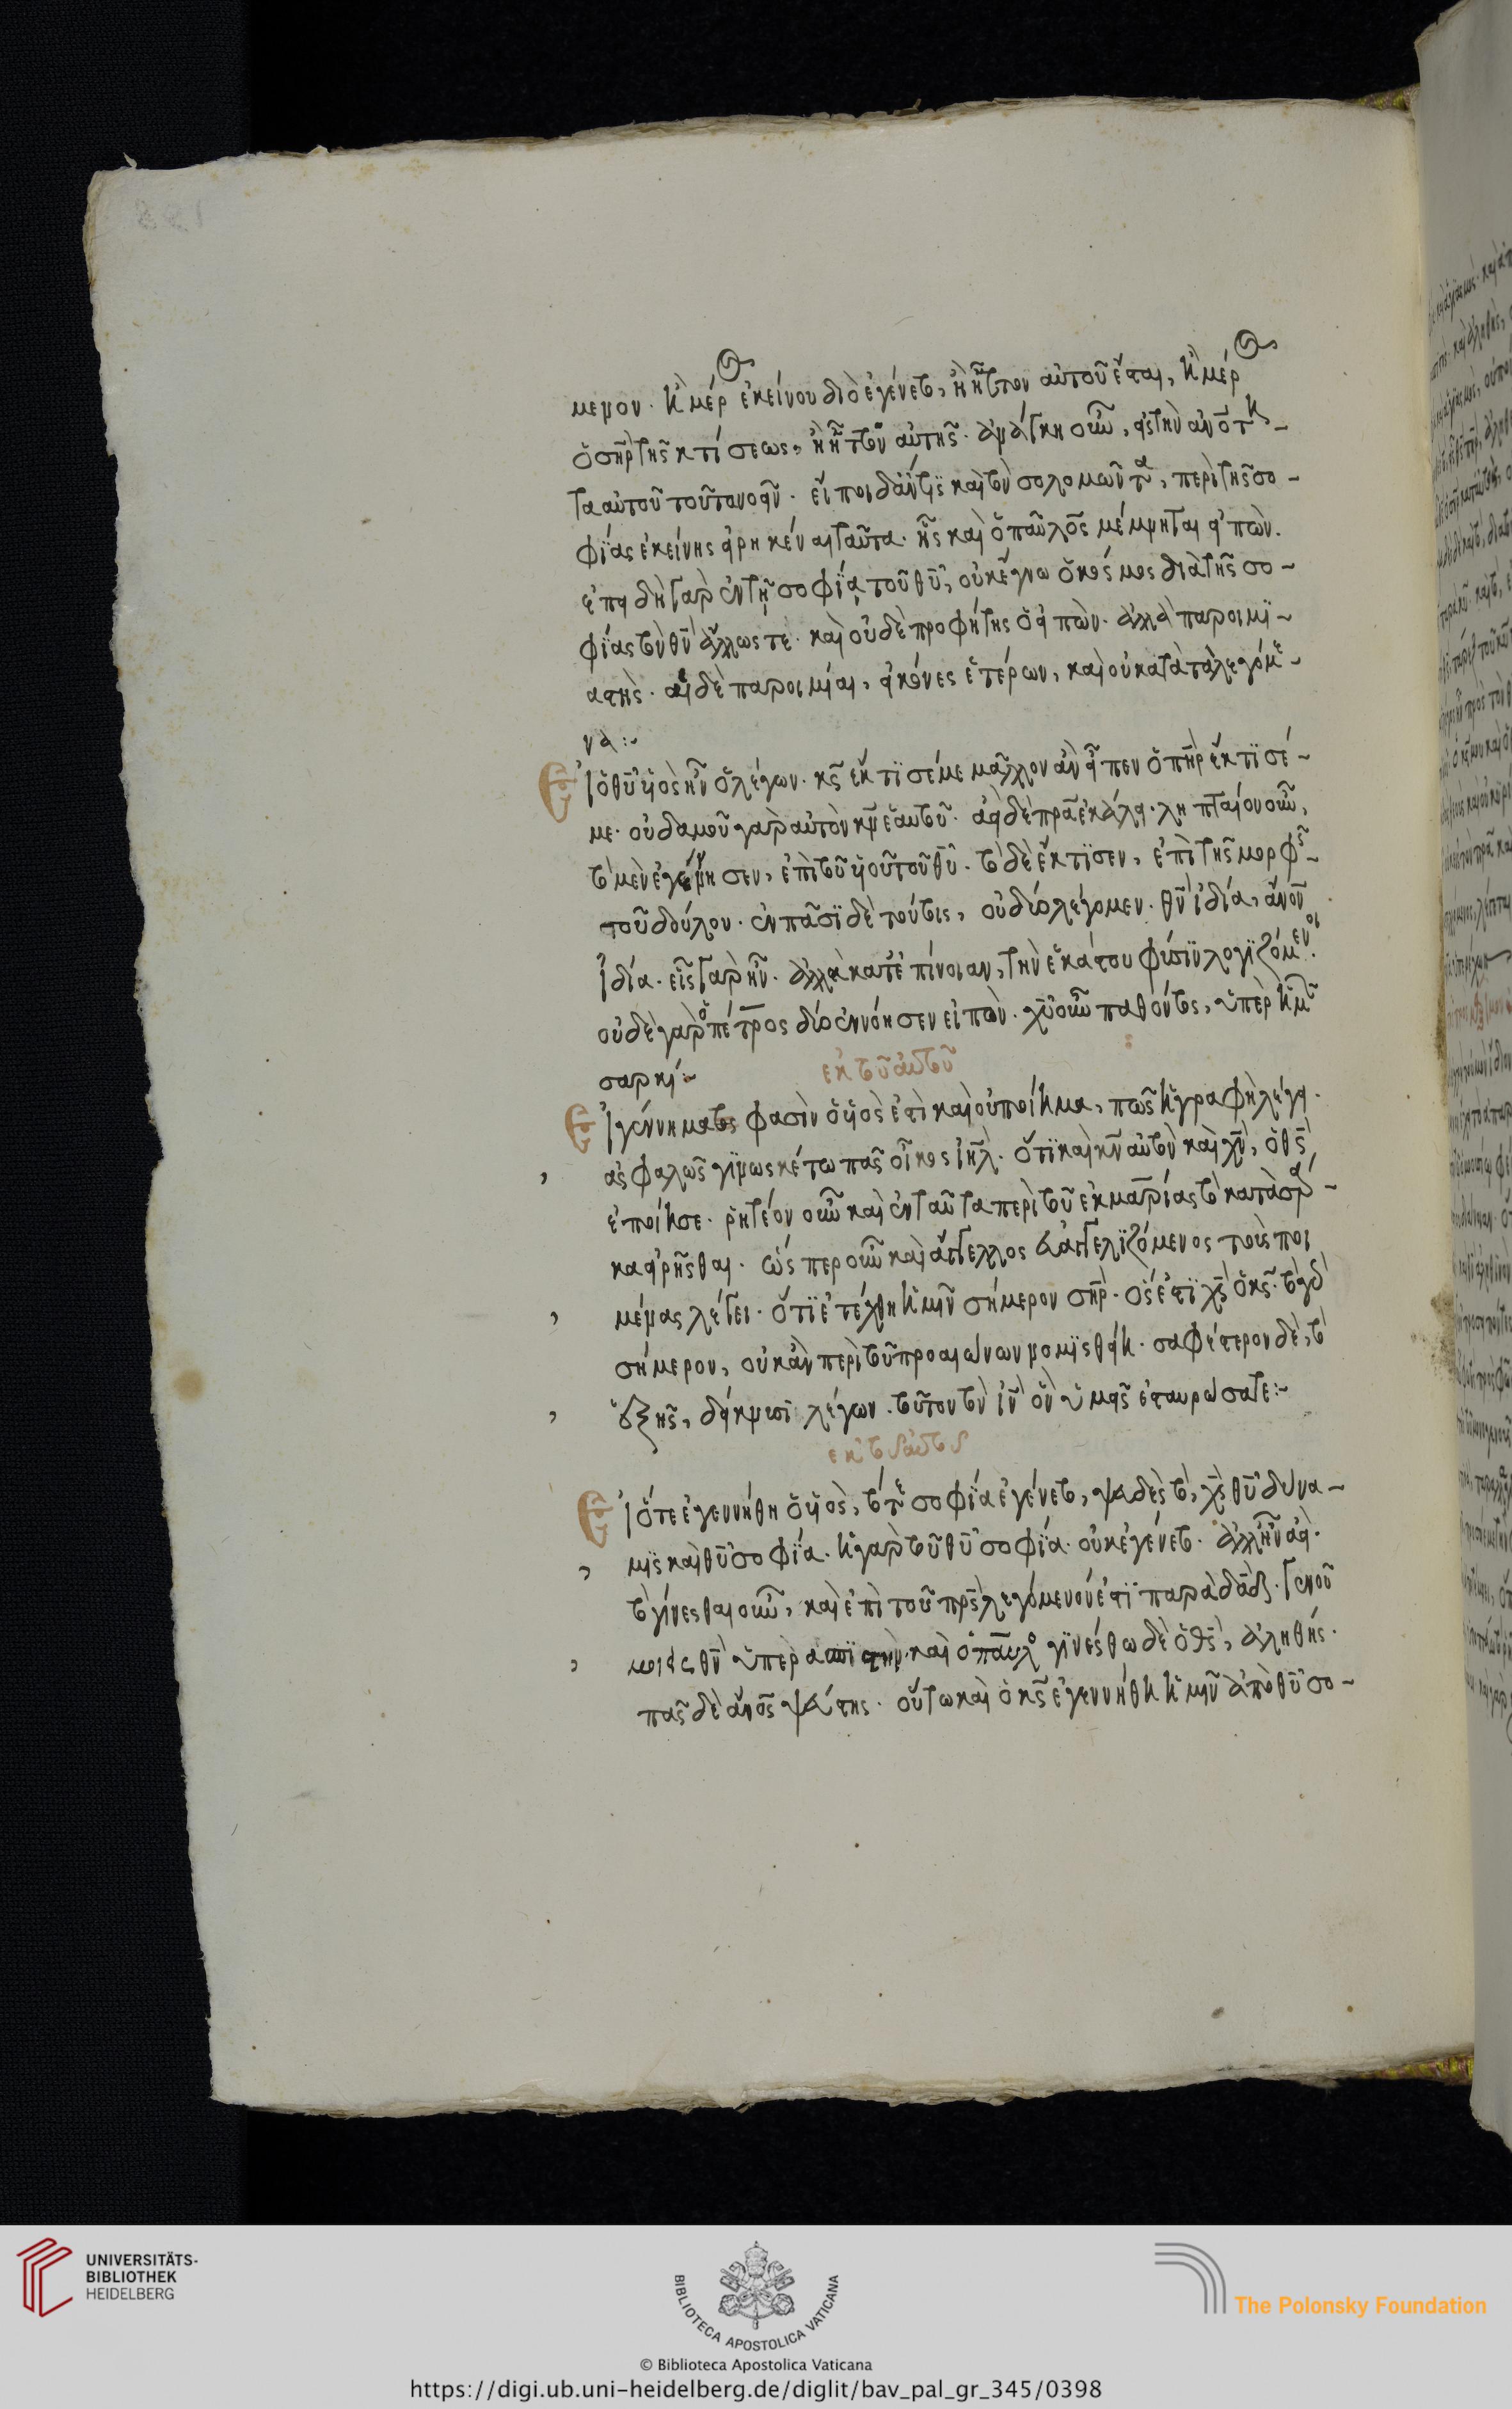 μενον. ἢ μέρος ἐκείνου διὸ ἐγένετο, ἢ ἧττον αὐτοῦ ἔσται, ἢ μέρος
ὁ σηρ τῆς κτίσεως, ἢ ἧττον αὐτῆς. ἀμάχη οὖν,
τα αὐτοῦ τοῦτο νοεῖν. καὶ τὸν σολομῶντα, περὶ τῆς σο-
φίας ἐκείνης εἰρηκέναι ταῦτα. ἧς καὶ ὁ παῦλος μέμνηται εἰπὼν.
ἐπειδὴ γὰρ ἐν τῇ σοφίᾳ τοῦ θῦ, οὐκ ἔγνω ὁ κόσμος διὰ τῆς σο-
φίας τὸν θν ἄλλως τὲ. καὶ οὐδὲ προφήτης ὁ εἰπὼν. ἀλλὰ παροιμϊ-
αστὴς. αἱ δὲ παροιμίαι, εἰκόνες ἑτέρων, καὶ οὐ κατὰ τὰ λεγόμε-
να:~
Εἰ ὁ θῦ υἱὸς ἦν ὁ λέγων. κς ἔκτϊσέ με μᾶλλον ἂν εἶπεν ὁ πηρ ἔκτϊσέ-
με. οὐδαμοῦ γὰρ αὐτὸν κν ἑαυτοῦ. ἀεὶ δὲ πρα ἐκάλει. ληπταίον οὖν,
τὸ μὲν ἐγέννησεν, ἐπὶ τοῦ υἱοῦ τοῦ θῦ. τὸ δὲ ἔκτϊσεν, ἐπὶ τῆς μορφῆς
τοῦ δούλου. ἐν πᾶσϊ δὲ τούτοις, οὐ δύο λέγομεν. θν ἰδία, ἄνον
ἰδία. εἷς γὰρ ἦν. ἀλλὰ κατ' ἐπίνοιαν, τὴν ἑκάστου φύσϊν λογϊζόμενοι.
οὐδὲ γὰρ ὁ πέτρος δύο ἐνόησεν εἰπὼν. χῦ οὖν παθόντος, ὑπὲρ ἡμῶν
σαρκί:~
ἐκ τοῦ αὐτοῦ
Εἰ γέννημα τὸς φασὶν ὁ υἱὸς ἐστὶ καὶ οὐ ποίημα, πῶς ἡ γραφὴ λέγει.
ἀσφαλῶς γϊνωσκέτω πᾶς οἶκος ιηλ. ὅτϊ καὶ κν αὐτὸν καὶ χν, ὁ θς
ἐποίησε. ῥητέον οὖν καὶ ἐνταῦτα περὶ τοῦ ἐκ μαρίας τὸ κατὰ σάρ-
κα εἰρῆσθαι. ὥσπερ οὖν καὶ ἄγγελλος εὐαγγελϊζόμενος τοὺς ποι
μένας λέγει. ὅτϊ ἐτέχθη ἡμῖν σήμερον σηρ. ὅς ἐστϊ χς ὁ κς. τὸ γὰρ
σήμερον, οὐκ ἂν περὶ τοῦ προαιώνων νομϊσθῇ. σαφέστερον δὲ, τὸ
ἑξῆς, δείκνυσϊ λέγων. τοῦτον τὸν ιν ὃν ὑμεῖς ἐσταυρώσατε:~
ἐκ τοῦ αὐτοῦ
Εἰ ὅτε ἐγεννήθη ὁ υἱὸς, τότε σοφία ἐγένετο, ψευδὲς τὸ, χς θῦ δύνα-
μϊς καὶ θῦ σοφϊα. ἡ γὰρ τοῦ θῦ σοφϊα. οὐκ ἐγένετο. ἀλλ' ἦν ἀεὶ.
τὸ γίνεσθαι οὖν, καὶ ἐπὶ τοῦ πρς λεγόμενον ἐστϊ παρὰ δαδ. γενοῦ
μοι εἰς θν ὑπερασπϊστὴν. καὶ ὁ παυλος γϊνέσθω δὲ ὁ θς, ἀληθής.
πᾶς δὲ ἄνος ψεύστης. οὕτω καὶ ὁ κς ἐγεννήθη ἡμῖν ἀπὸ θῦ σο-
UNIVERSITÄTS-
BIBLIOTHEK
HEIDELBERG
BIBLIOTECA APOSTOLICA VATICANA
The Polonsky Foundation
© Biblioteca Apostolica Vaticana
https://digi.ub.uni-heidelberg.de/diglit/bav_pal_gr_345/0398